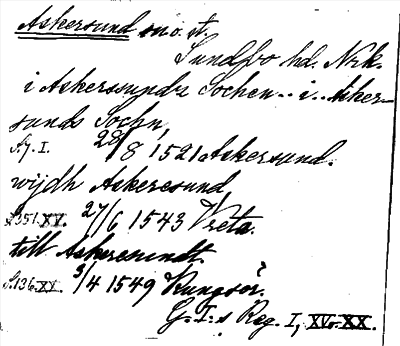 Askersund sn o. st.
Sundbo hd. Nrk.
i Askerssundz Sochen.. i.. Asker-
sunds Sochn,
S. 7. I. 28/8 1521 Askersund.
wijdh Askeresund
S. 351. XV. 27/6 1543 Vreta.
till Askeresundt.
S. 136. XX. 3/4 1549 Kungsör.
G. I:s Reg. I, XV o. XX.